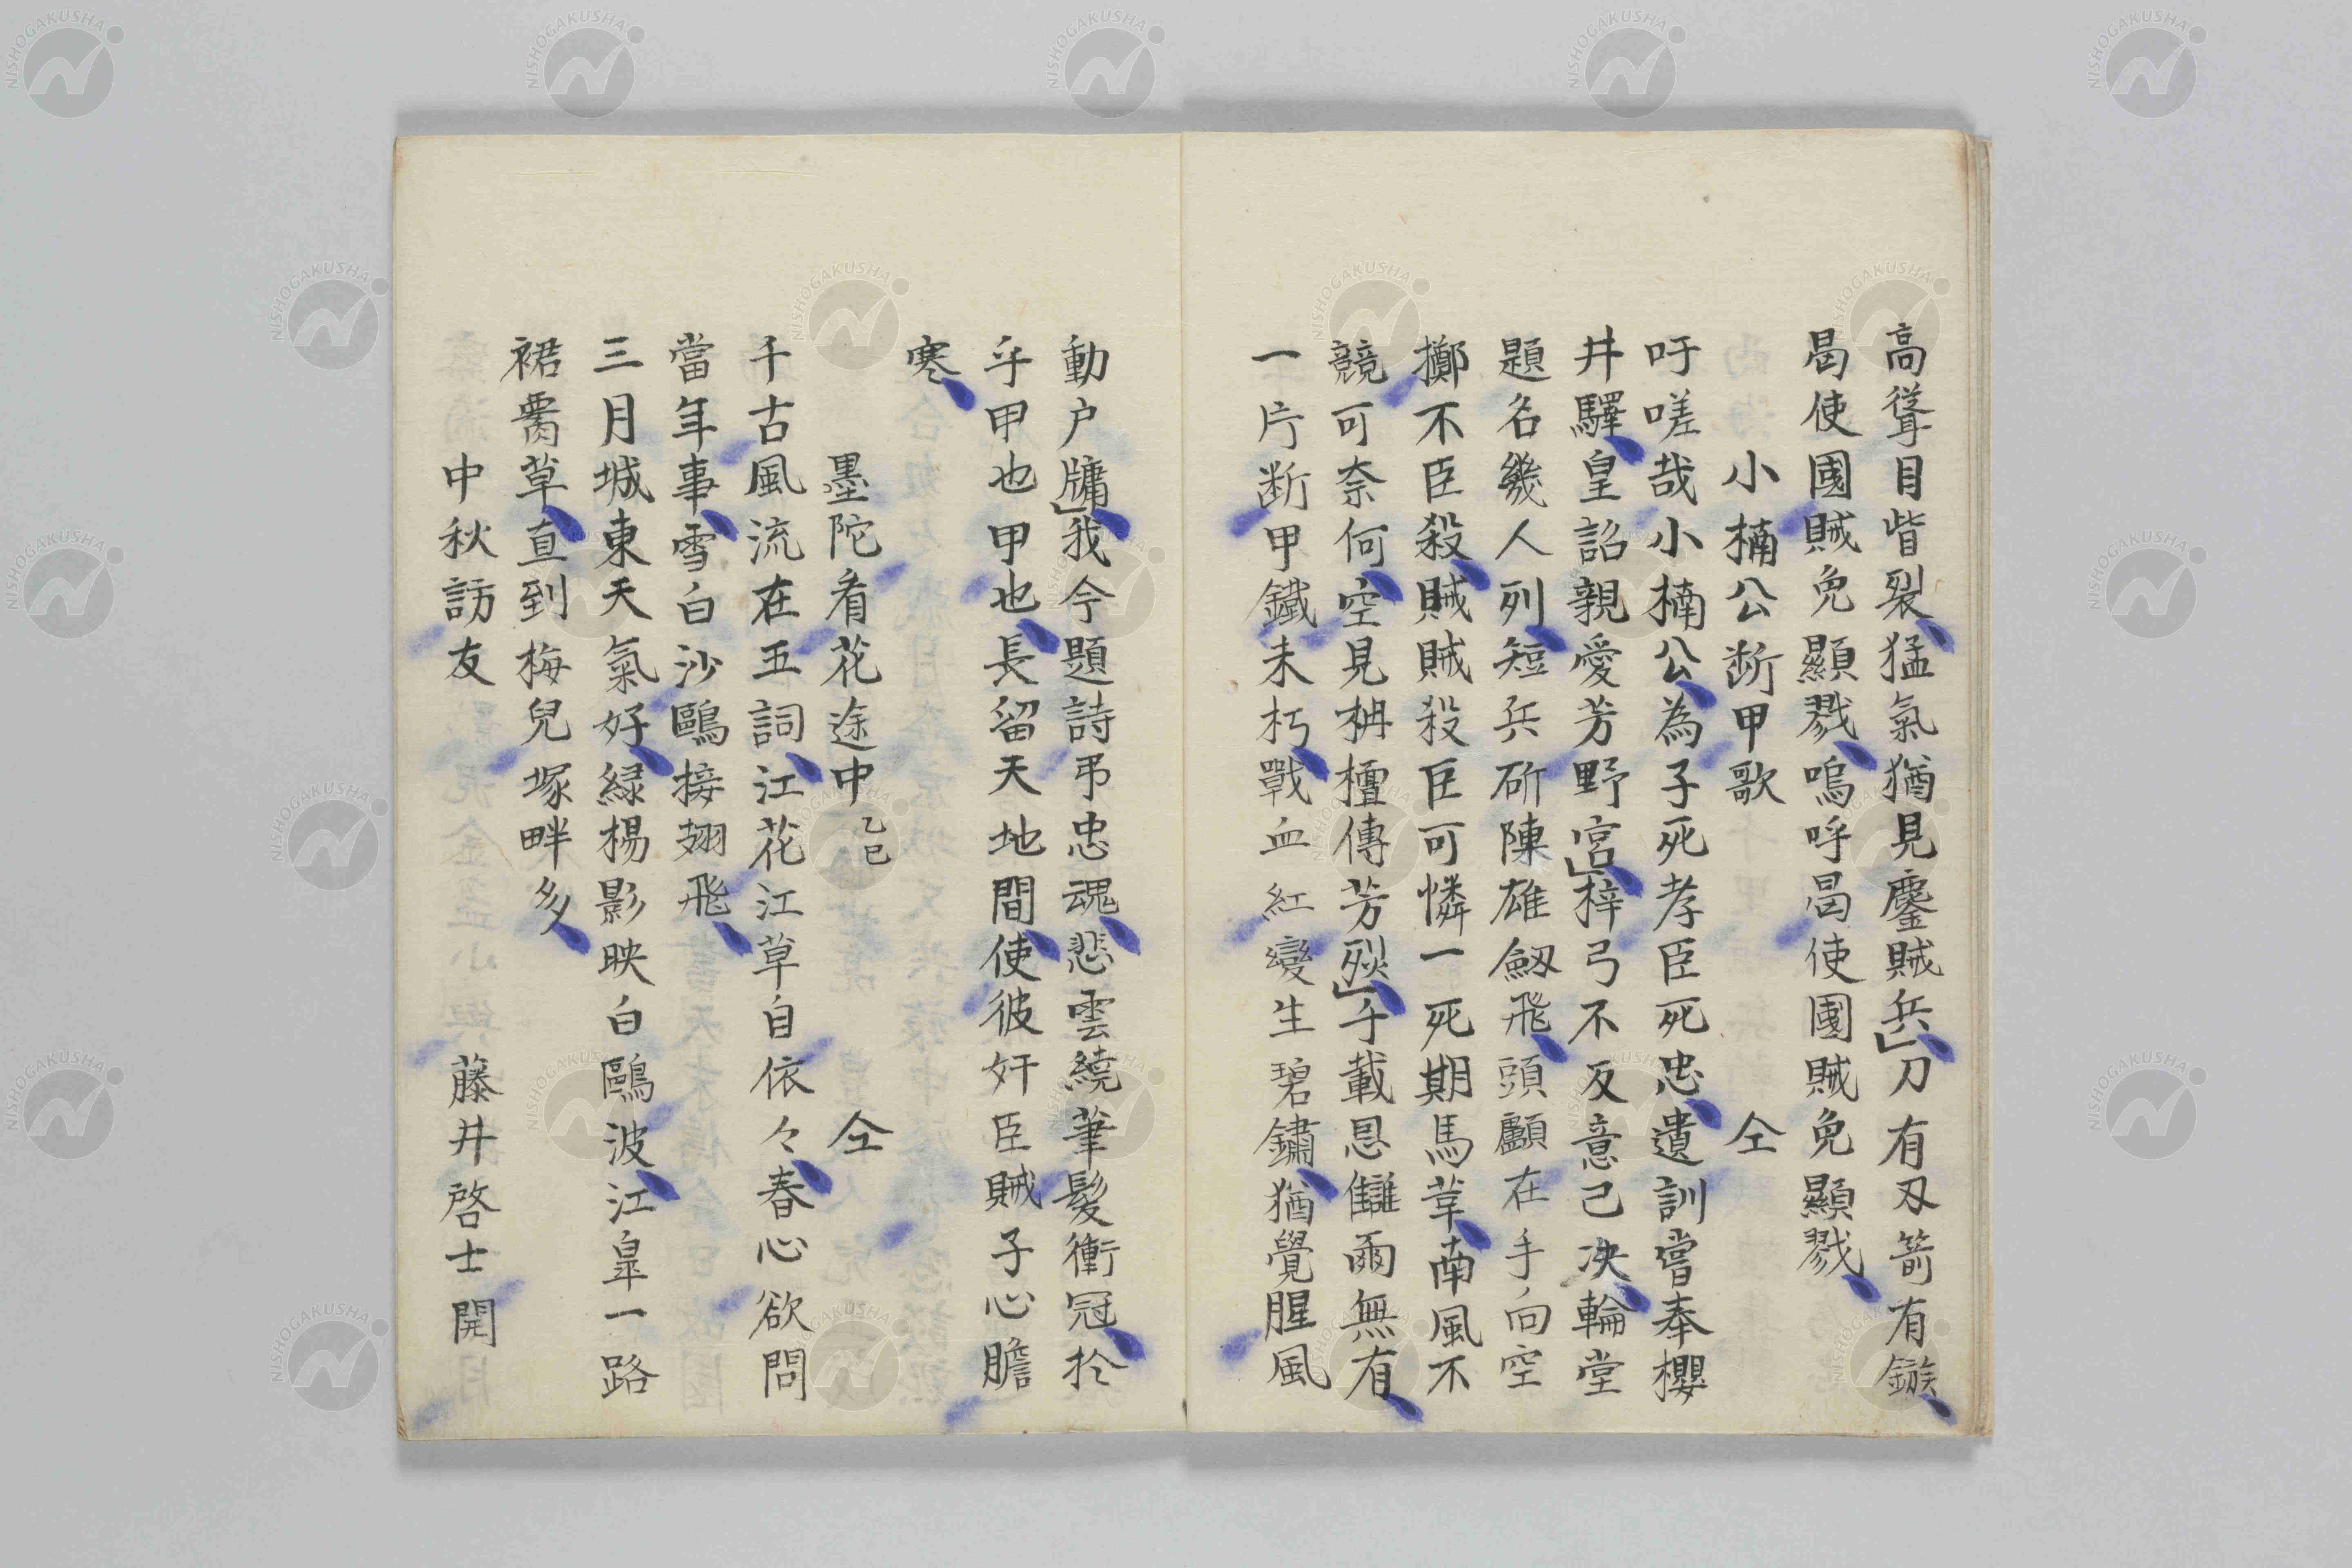 高聳目眥裂猛氣猶見鏖賊兵」刀有刄箭有鏃
曷使國賊免顯戮嗚呼曷使國賊免顯戮
小楠公断甲歌　仝
吁嗟哉小楠公為子死孝臣死忠遺訓嘗奉櫻
井驛皇詔親愛芳野宮」梓弓不反意已决輪堂
題名幾人列短兵斫陳雄劔飛頭顱在手向空
擲不臣殺賊賊殺臣可憐一死期馬革南風不
競可奈何空見枏檀傳芳烈」千載恩讎兩無有
一片断甲鐵未朽戰血紅變生碧鏽猶覺腥風
動户牗」我今題詩弔忠魂悲雲繞筆髮衝冠於
乎甲也甲也長留天地間使彼奸臣賊子心膽
寒
墨陀看花途中 乙巳　仝
千古風流在五詞江花江草自依々春心欲問
當年事雪白沙鷗接翅飛
三月城東天氣好緑楊影映白鷗波江皐一路
裙褭草直到梅兒塚畔多
中秋訪友　藤井啓士開
NISHOGAKUSHA